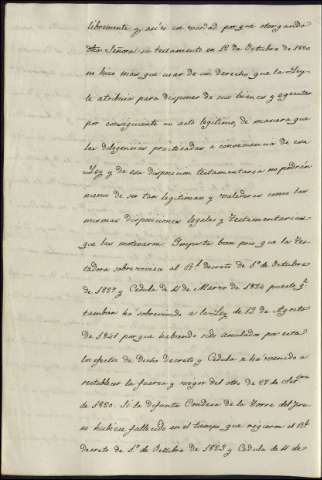 libremente y asi es en verdad porque otorgando
dha Señora su testamento en 18 de Octubre de 1820
no hizo mas que usar de un derecho, que la Ley
le atribuia para disponer de sus bienes y egecutar
por consiguiente un acto legitimo, de manera que
las diligencias practicadas a consecuencia de esa
Ley y de esa disposicion testamentaria no podrán
menos de ser tan legitimas y valederas como las
mismas disposiciones legales y Testamentarias
que las motivaron. Importa bien poco que la Tes-
tadora sobreviviera al Rl decreto de 1º de Octubre
de 1823 y Cedula de 11 de Marzo de 1824 puesto qe
tambien ha sobrevenido a la Ley de 19 de Agosto
de 1841 porque habiendo sido anulados por esta
los efectos de dicho Decreto y Cedula se ha venido a
restablecer la fuerza y vigor del otro de 27 de Setbre
de 1820. Si la difunta Condesa de la Torre del
hubiese fallecido en el tiempo que regiaron el Rl
decreto de 1º de Octubre de 1823 y Cedula de 11 de